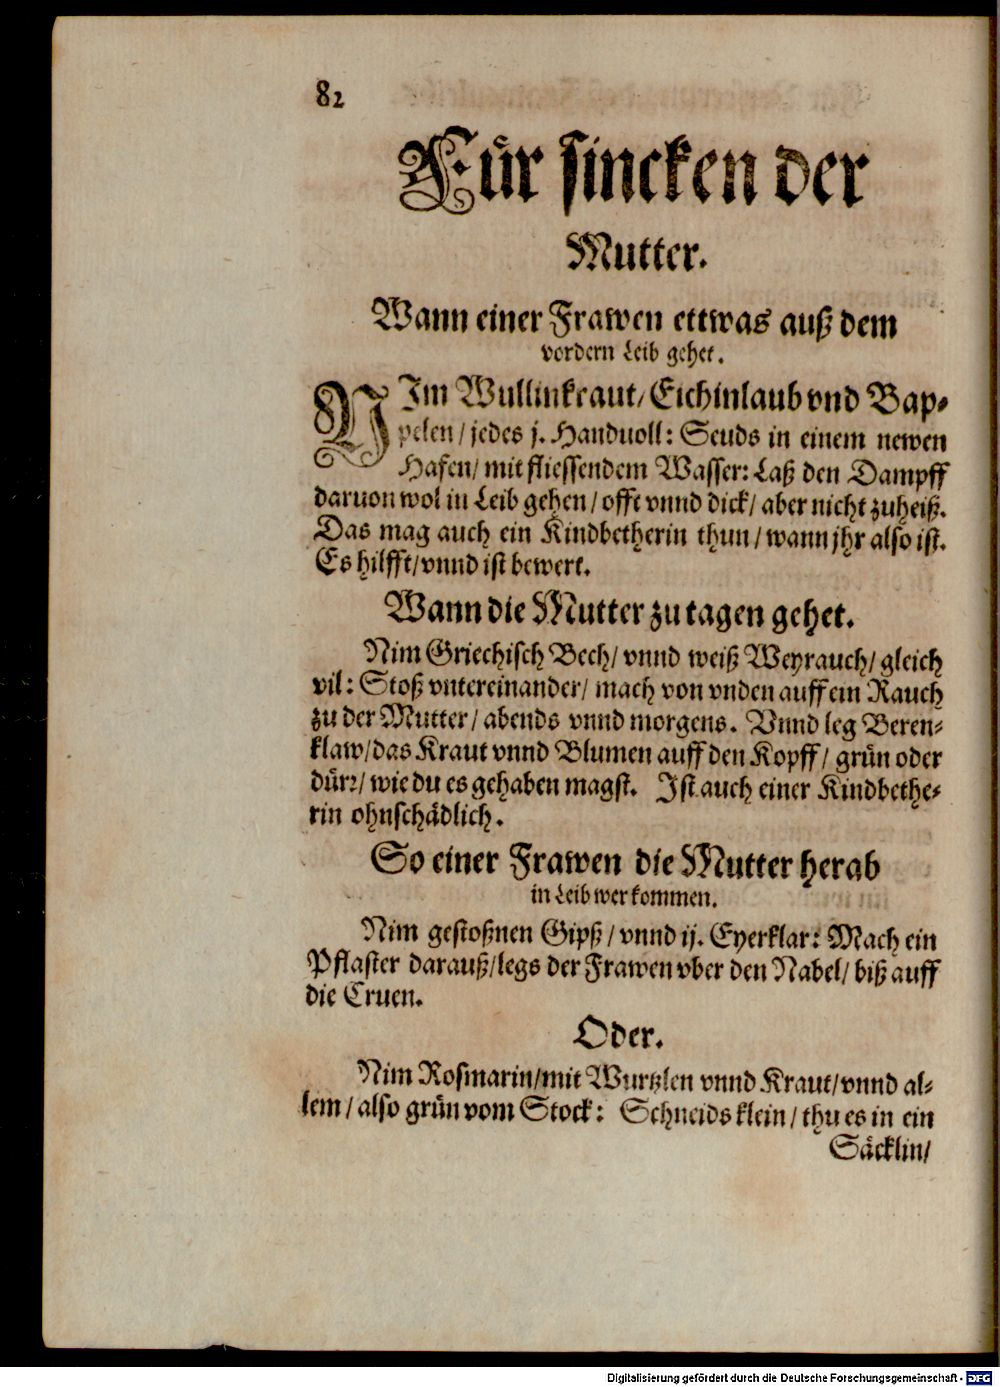 82
Für sincken der
Mutter.
Wann einer Frawen ettwas auß dem
vordern Leib gehet.
NIm Wullinkraut/ Eichinlaub vnd Bap-
pelen/ jedes j. Handuoll: Seuds in einem newen
Hafen/ mit fliessendem Wasser: Laß den Dampff
daruon wol in Leib gehen/ offt vnnd dick/ aber nicht zuheiß.
Das mag auch ein Kindbetherin thun/ wann jhr also ist.
Es hilfft/ vnnd ist bewert.
Wann die Mutter zu tagen gehet.
Nim Griechisch Bech/ vnnd weiß Weyrauch/ gleich
vil: Stoß vntereinander/ mach von vnden auff ein Rauch
zu der Mutter/ abends vnnd morgens. Vnnd leg Beren-
klaw/ das Kraut vnnd Blumen auff den Kopff/ grün oder
dürr/ wie du es gehaben magst. Ist auch einer Kindbethe-
rin ohnschädlich.
So einer Frawen die Mutter herab
in Leib wer kommen.
Nim gestoßnen Gipß/ vnnd ij. Eyerklar: Mach ein
Pflaster darauß/ legs der Frawen vber den Nabel/ biß auff
die Cruen.
Oder.
Nim Rosmarin/ mit Wurtzlen vnnd Kraut/ vnnd al-
lem/ also grün vom Stock: Schneids klein/ thu es in ein
Säcklin/
Digitalisierung gefördert durch die Deutsche Forschungsgemeinschaft - DFG